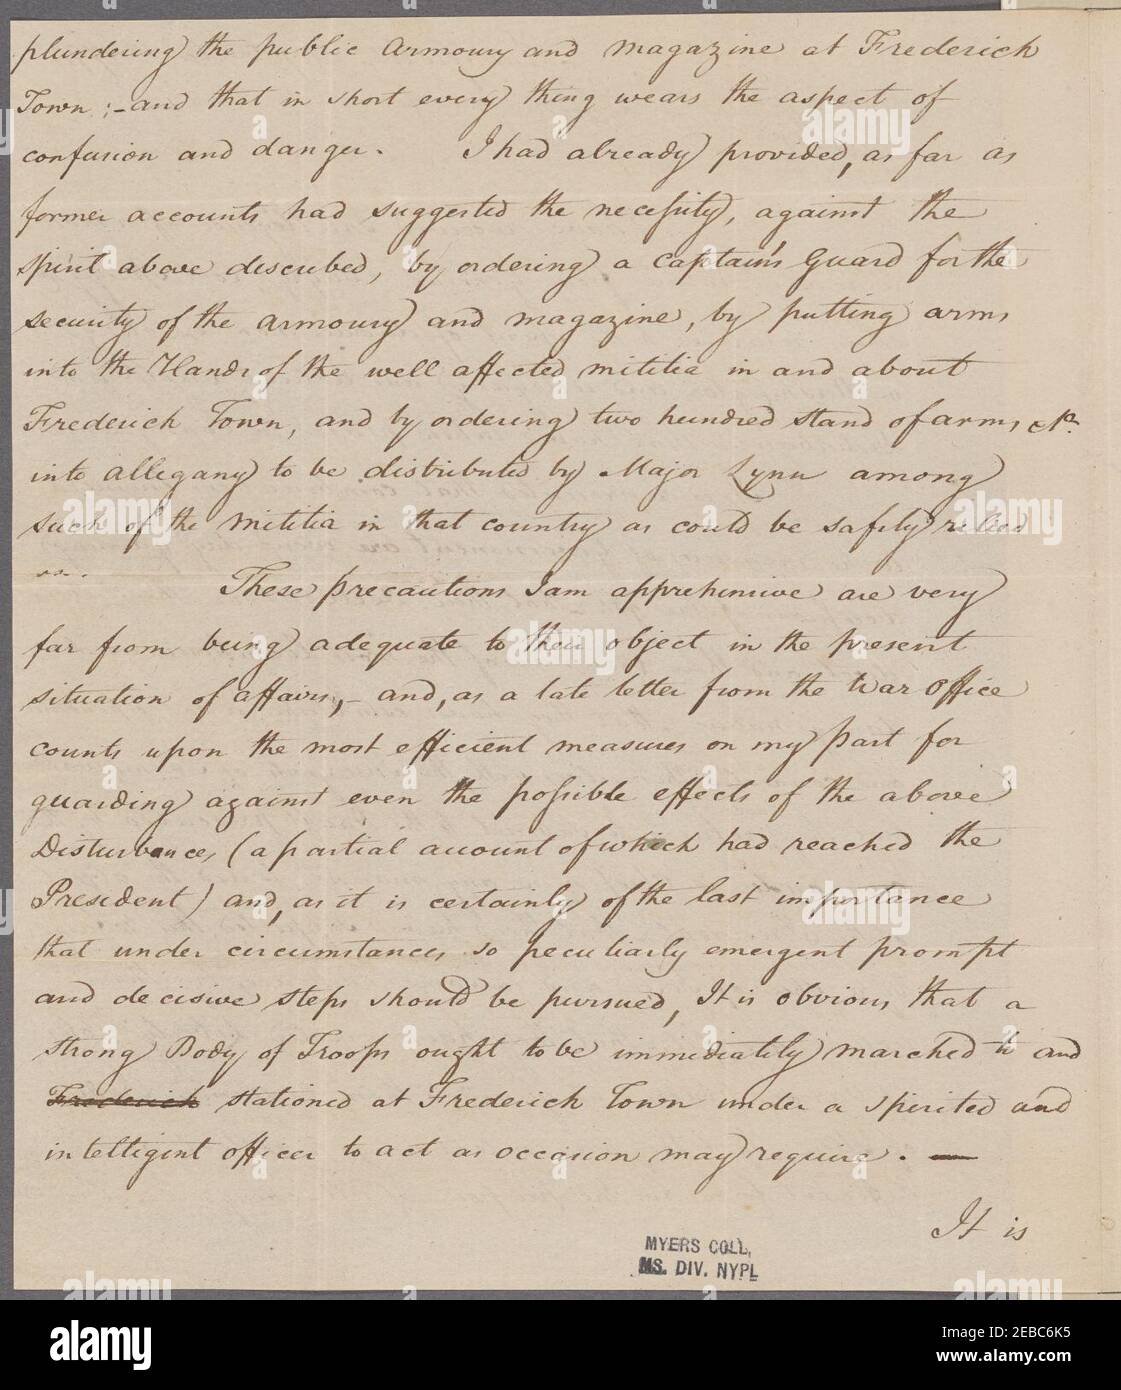 plundering the public Armoury and magazine at Frederick
Town;- and that in short every thing wears the aspect of
confusion and danger. I had already provided, as far as
former accounts had suggested the necessity, against the
spirit above described, by ordering a Captain's Guard for the
security of the armoury and magazine, by putting arms
into the Hands of the well affected militia in and about
Frederick Town, and by ordering two hundred stand of arms, &ca.
into Allegany to be distributed by Major Lynn among
such of the militia in that country as could be safely relied
on.
These precautions I am apprehensive are very
far from being adequate to their object in the present
situation of affairs,- and, as a late letter from the War Office
counts upon the most efficient measures on my part for
guarding against even the possible effects of the above
Disturbances, (a partial account of which had reached the
President) and, as it is certainly of the last importance
that under circumstances so peculiarly emergent prompt
and decisive steps should be pursued, It is obvious that a
strong Body of Troops ought to be immediately marched to and
Frederick stationed at Frederick Town under a spirited and
intelligent officer to act as occasion may require. —
It is
MYERS COLL,
MS. DIV. NYPL
alamy
Image ID: 2EBC6K5
www.alamy.com